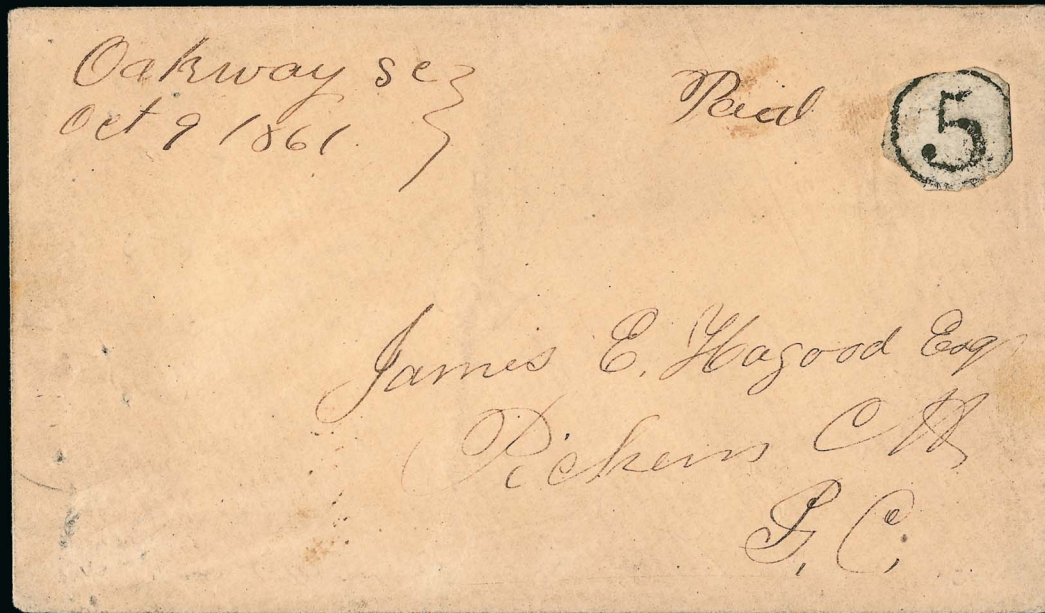 Oakway SC
Oct 9 1861.
Paid
5
James E. Hagood Esq
Pickens C H
S. C.